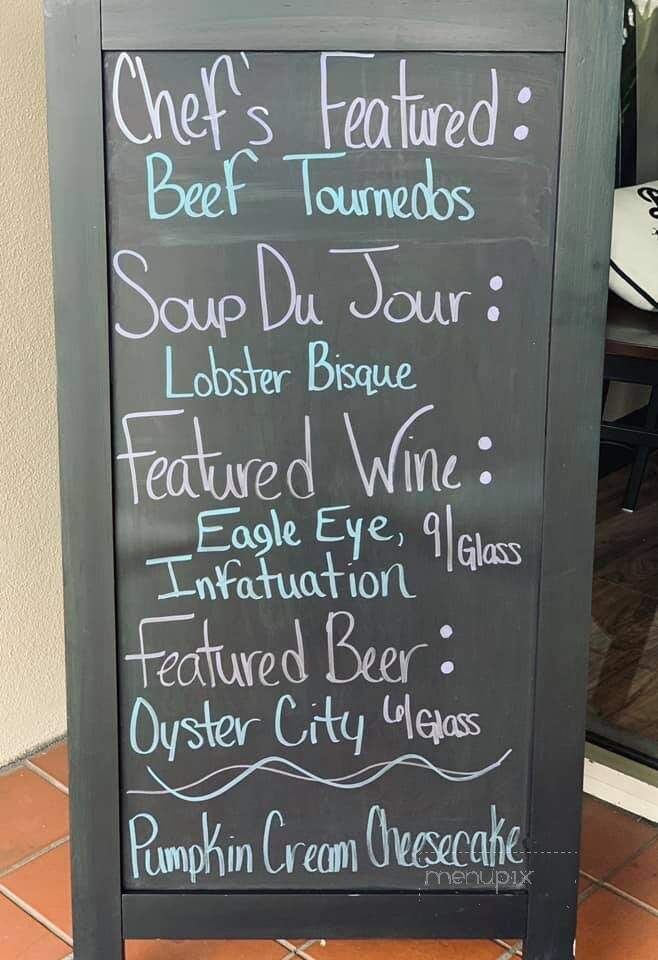 Chef's Featured:
Beef Tournedos
Soup Du Jour:
Lobster Bisque
Featured Wine:
Eagle Eye, 9/Glass
Infatuation
Featured Beer:
Oyster City 6/Glass
Pumpkin Cream Cheesecake
menupix